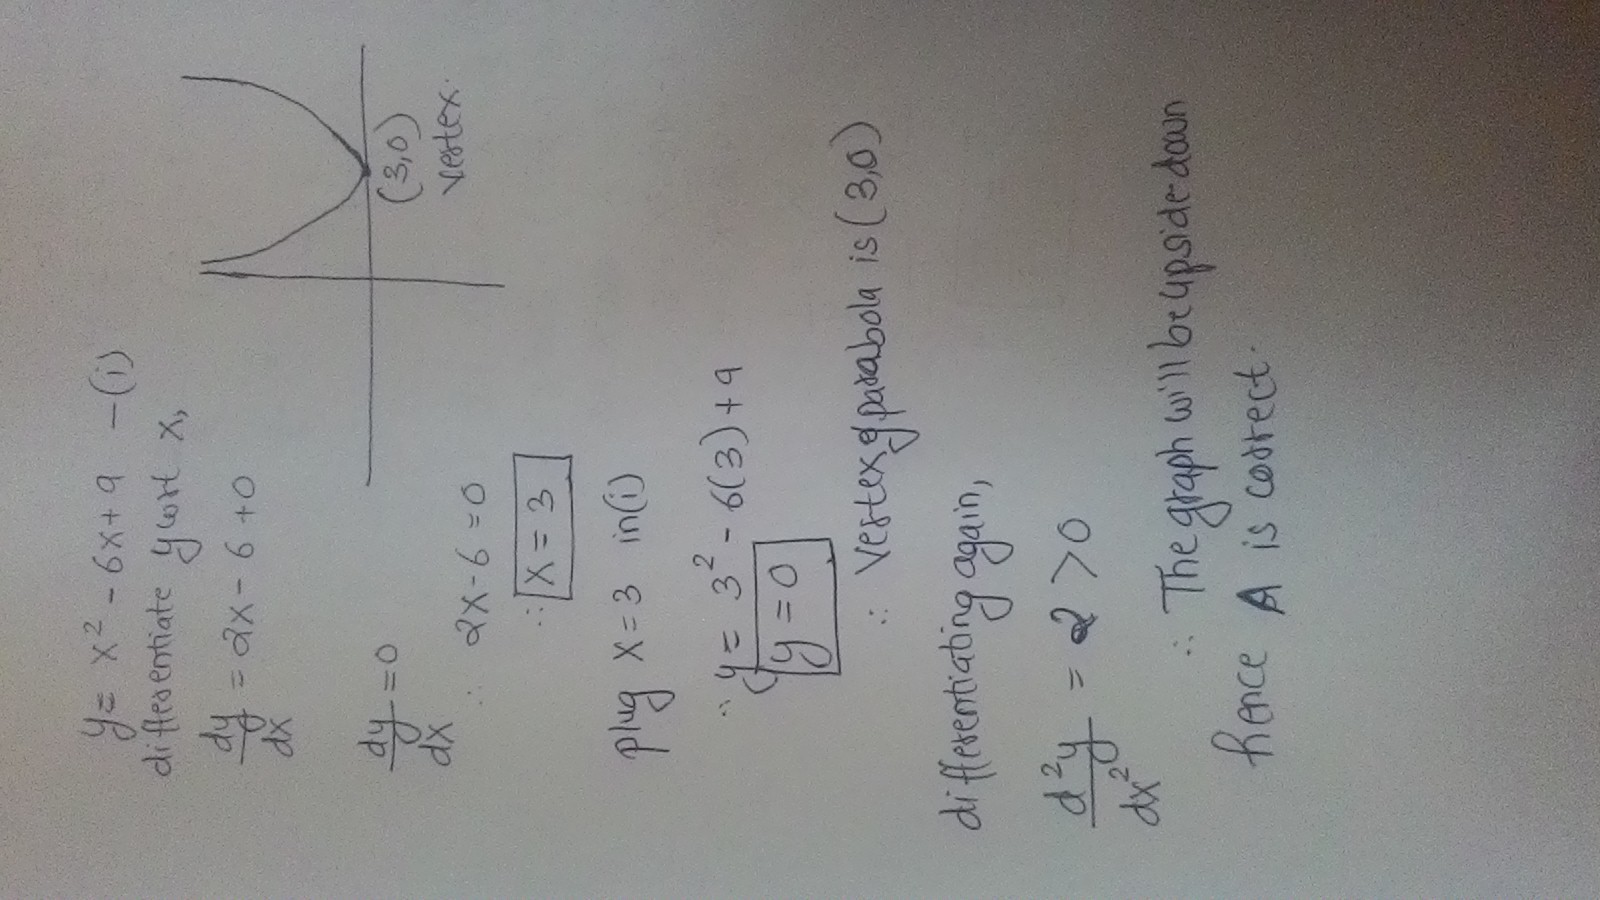 y = x² - 6x + 9 - (i)
differentiate y wrt x,
dy/dx = 2x - 6 + 0
dy/dx = 0
∴ 2x - 6 = 0
∴ x = 3
plug x = 3 in (i)
∴ y = 3² - 6(3) + 9
y = 0
∴ vertex of parabola is (3,0)
differentiating again,
d²y/dx² = 2 > 0
∴ The graph will be upside down
hence A is correct.
(3,0)
vertex.